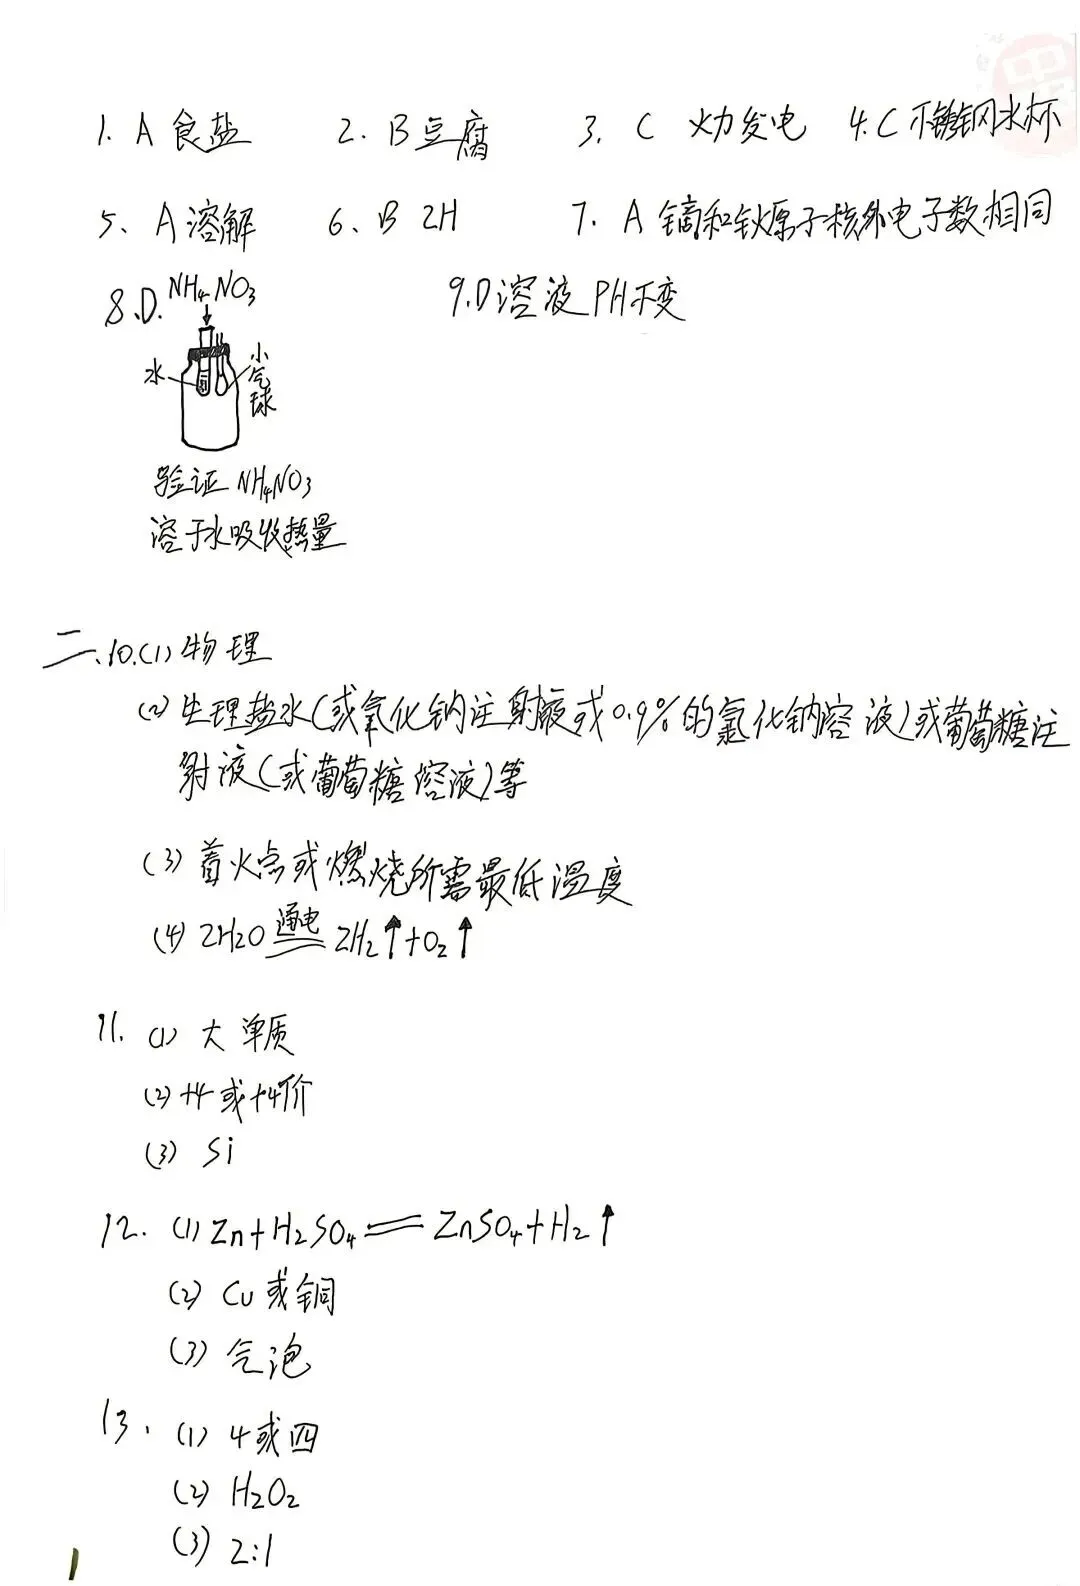 1. A 食盐 2. B豆腐 3. C 火力发电 4. C 不锈钢水杯
5、A溶解 6、B 2H 7. A 镝和钬原子核外电子数相同
8.D. NH₄NO₃ 9.D溶液PH不变
水 小气球
验证NH₄NO₃
溶于水吸收热量
二.10.(1)物理
(2)生理盐水(或氧化钠注射液或0.9%的氯化钠溶液)或葡萄糖注
射液(或葡萄糖溶液)等
(3)着火点或燃烧所需最低温度
(4) 2H2O 通电 2H₂↑+O₂↑
11. (1) 大 单质
(2)+4或+4价
(3) Si
12. (1) Zn+H₂SO₄=ZnSO₄+H₂↑
(2) Cu或铜
(3) 气泡
13. (1) 4或四
(2) H₂O₂
(3) 2:1